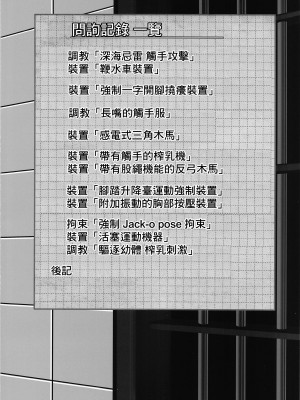 問詢記錄 一覽
調教「深海忌雷 觸手攻擊」
裝置「鞭水車裝置」
裝置「強制一字開腳撓癢裝置」
調教「長嘴的觸手服」
裝置「感電式三角木馬」
裝置「帶有觸手的榨乳機」
裝置「帶有股繩機能的反弓木馬」
裝置「腳踏升降臺運動強制裝置」
裝置「附加振動的胸部按壓裝置」
拘束「強制 Jack-o pose 拘束」
裝置「活塞運動機器」
調教「驅逐幼體 榨乳刺激」
後記